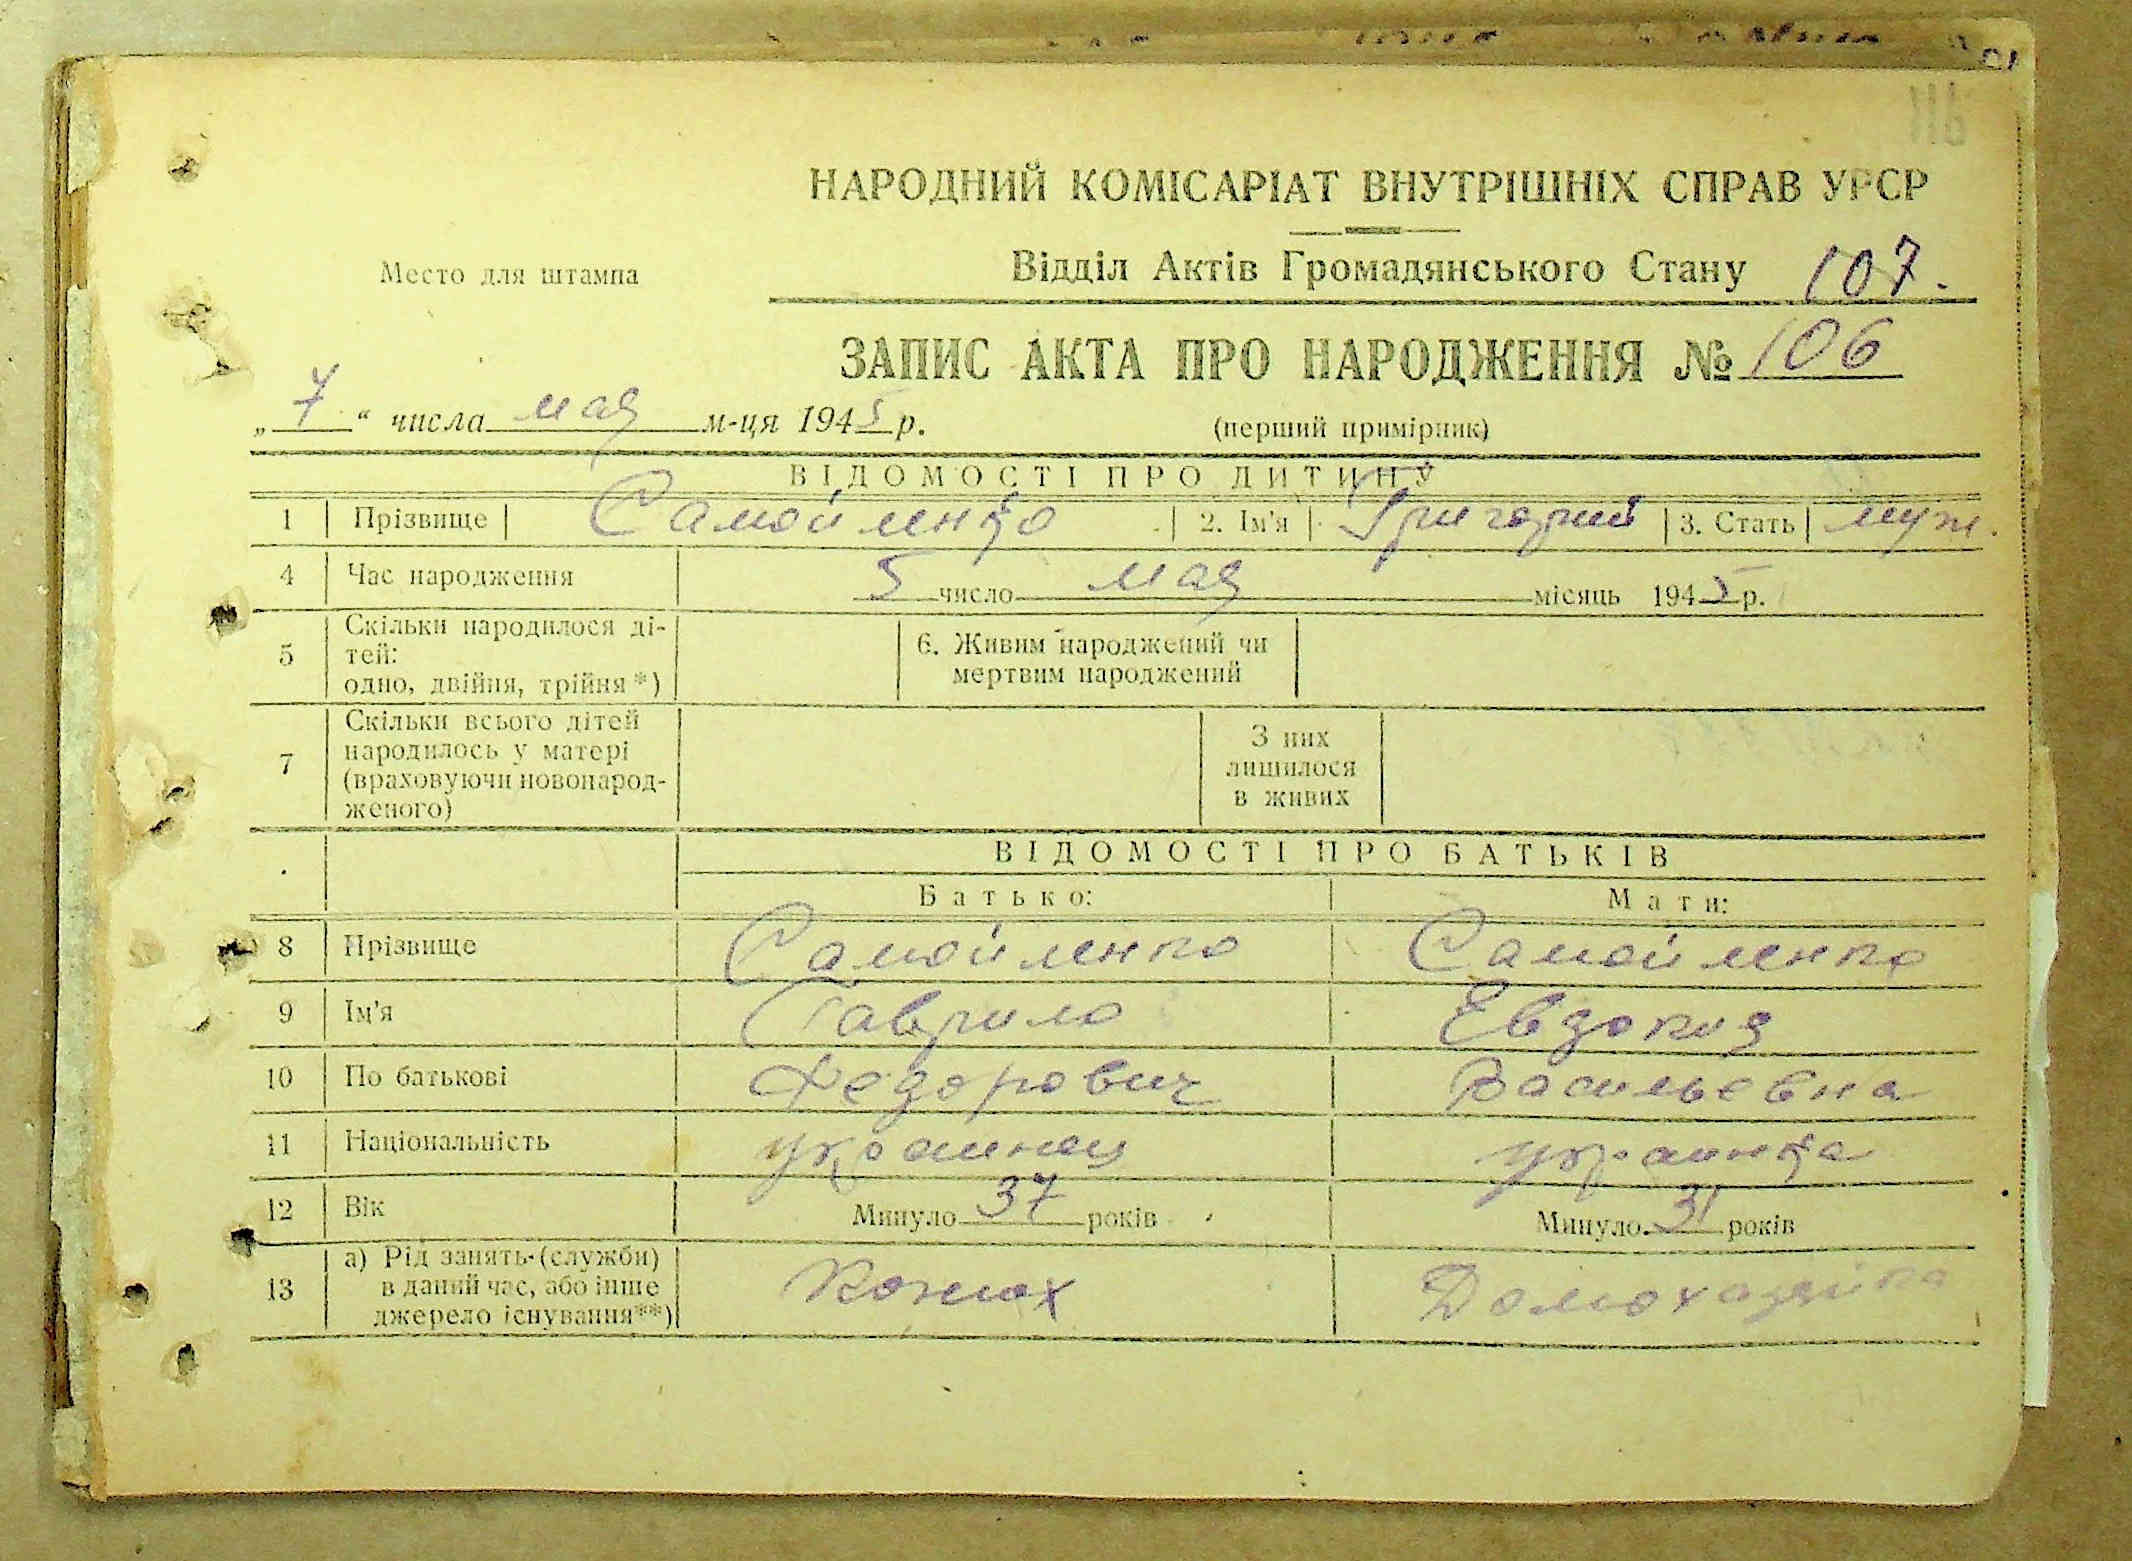 116
НАРОДНИЙ КОМІСАРІАТ ВНУТРІШНІХ СПРАВ УРСР
Место для штампа
Відділ Актів Громадянського Стану 107.
ЗАПИС АКТА ПРО НАРОДЖЕННЯ № 106
„ 7 “ числа мая м-ця 1945 р. (перший примірник)
ВІДОМОСТІ ПРО ДИТИНУ
1 Прізвище Самойленко 2. Ім'я Григорий 3. Стать муж.
4 Час народження 5 число мая місяць 1945 р.
5 Скільки народилося ді-
тей:
одно, двійня, трійня*)
6. Живим народжений чи
мертвим народжений
7 Скільки всього дітей
народилось у матері
(враховуючи новонарод-
женого)
З них
лишилося
в живих
ВІДОМОСТІ ПРО БАТЬКІВ
Батько: Мати:
8 Прізвище Самойленко Самойленко
9 Ім'я Гаврило Евдокия
10 По батькові Федорович Васильевна
11 Національність украинец украинка
12 Вік Минуло 37 років Минуло 31 років
13 а) Рід занять (служби)
в даний час, або інше
джерело існування**)
Конюх Домохазяйка